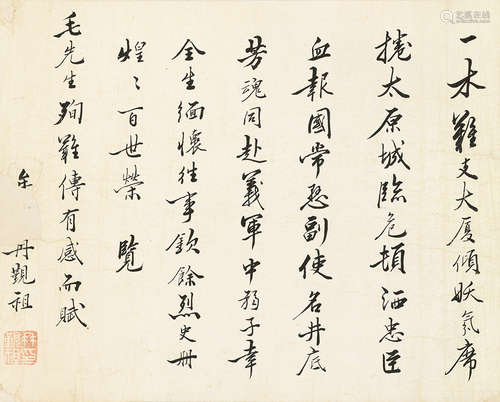 一木難支大厦傾妖氛席
捲太原城臨危頓洒忠臣
血報國常思副使名井底
芳魂同赴義軍中弱子幸
全生緬懷往事欽餘烈史册
煌〻百世榮 覽
毛先生殉難傳有感而賦
牟 丹觀祖